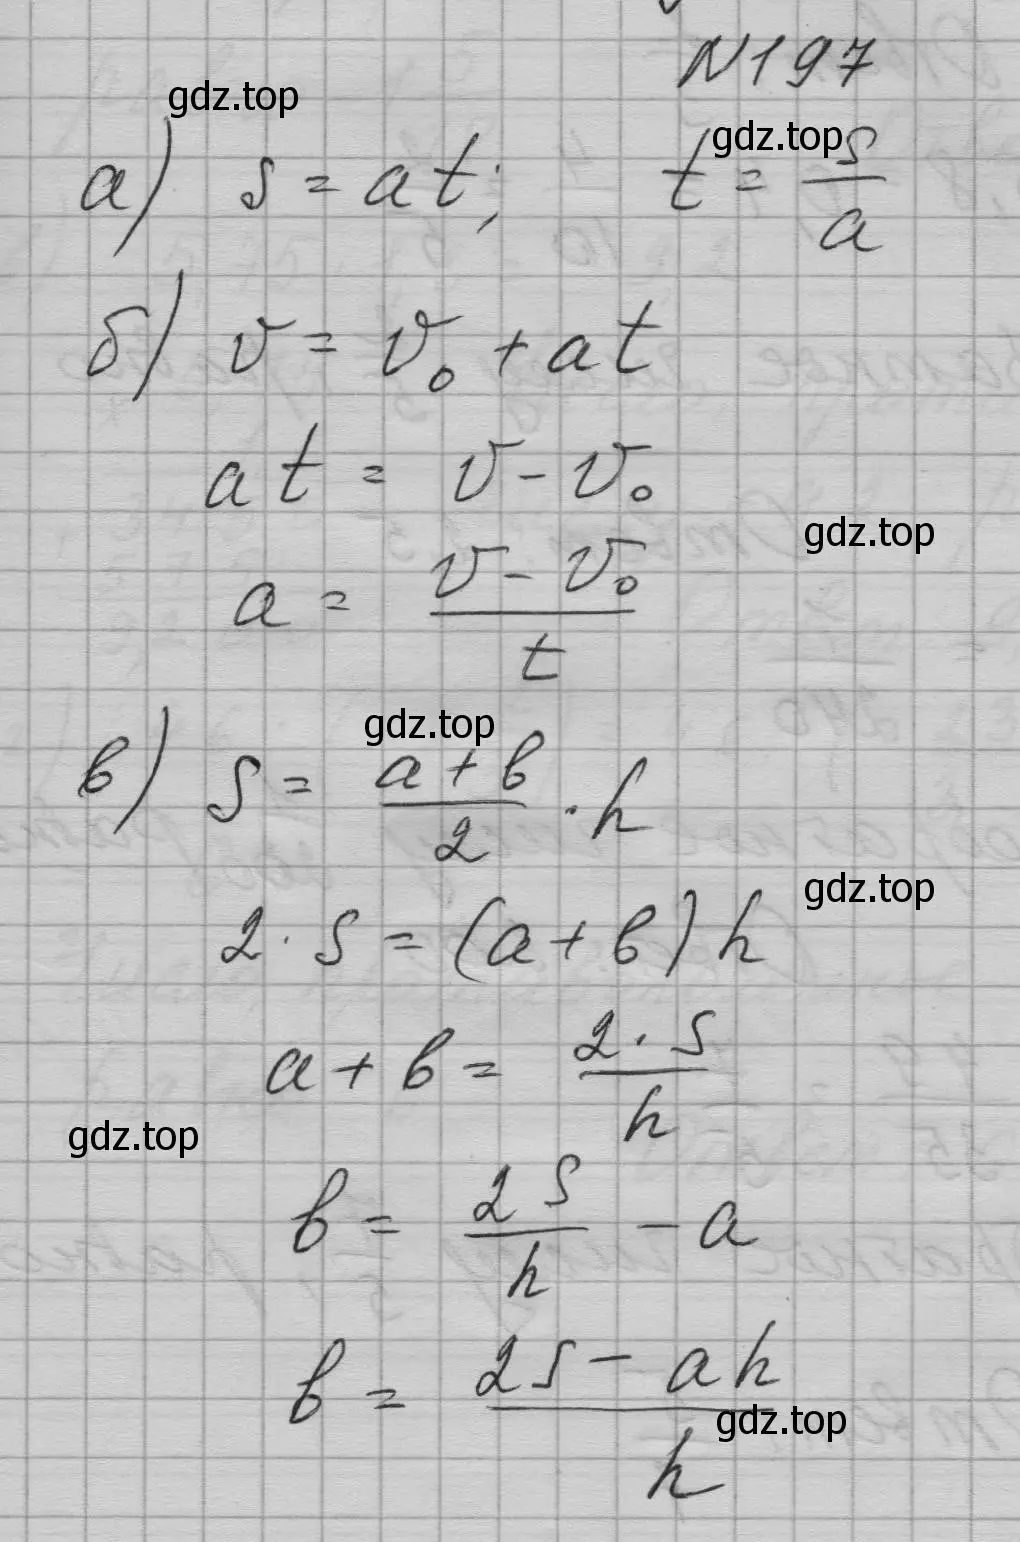 N197
gdz.top
gdz.top
а) s = at; t = s/a
б) v = v₀ + at
at = v - v₀
gdz.top
a = (v - v₀)/t
gdz.top
в) S = (a + b)/2 · h
gdz.top
2 · S = (a + b) h
a + b = (2 · S)/h
gdz.top
b = 2S/h - a
b = (2S - ah)/h
gdz.top